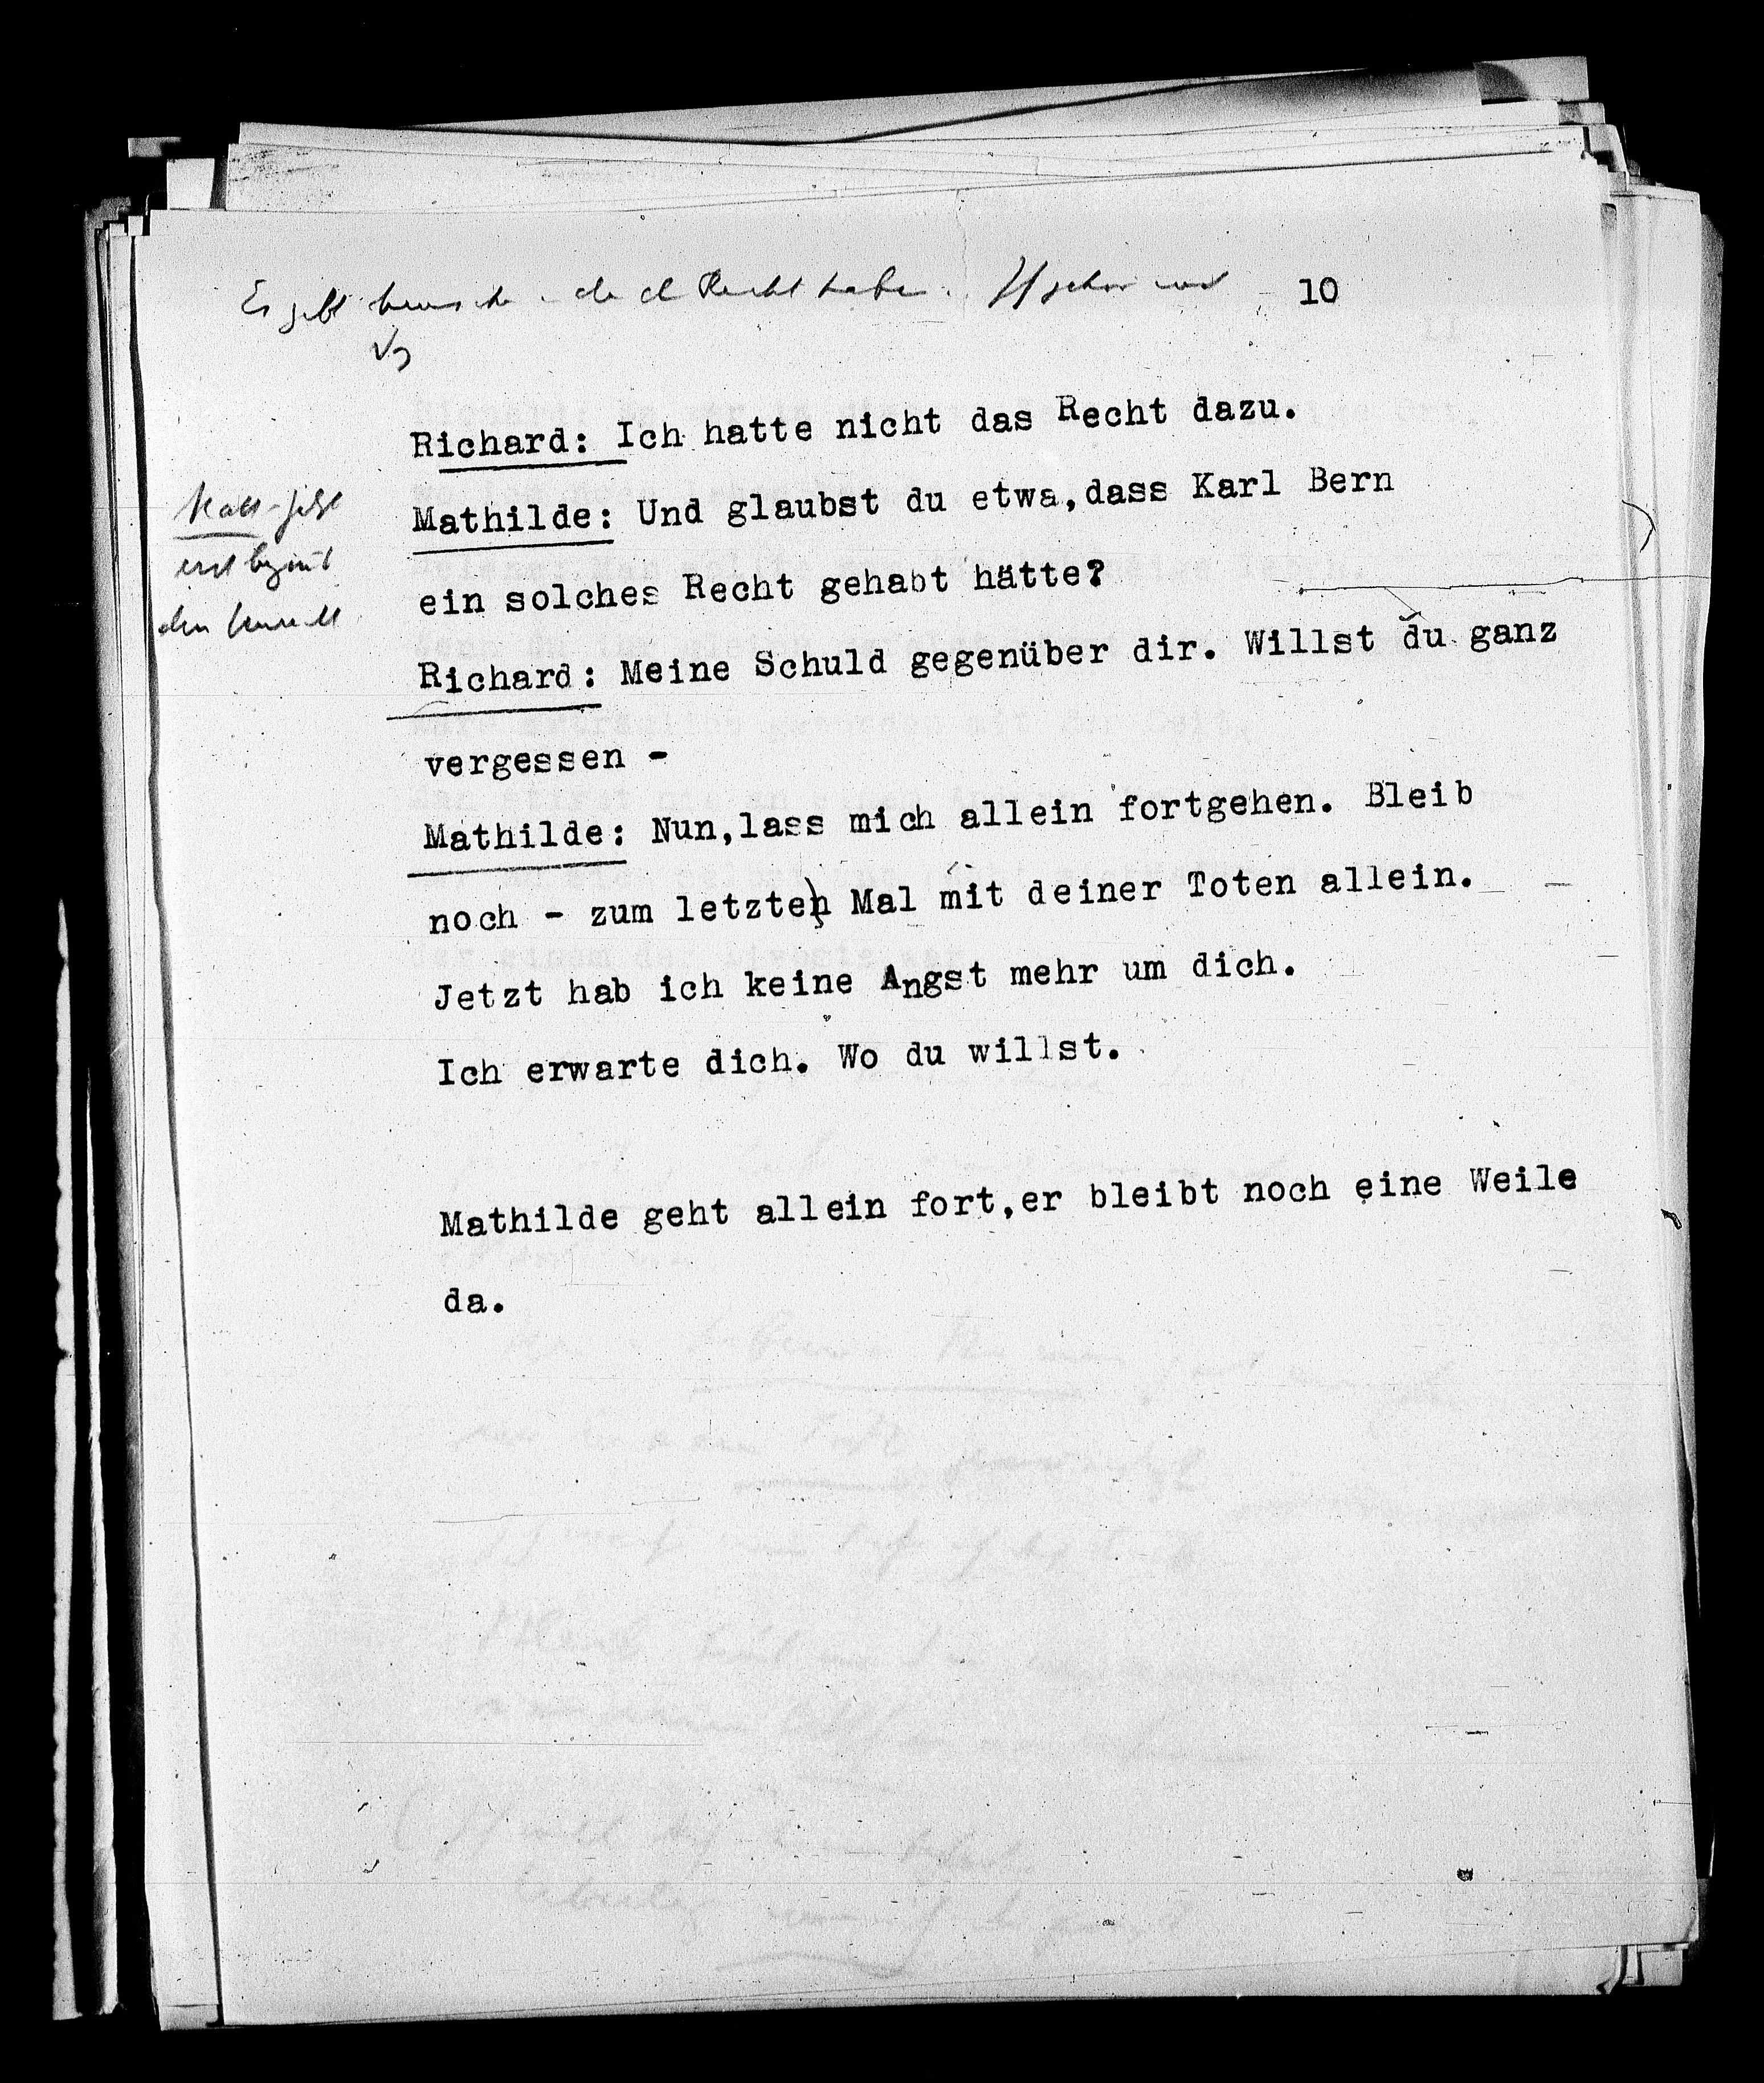 Es gibt die Recht haben. 10
Richard: Ich hatte nicht das Recht dazu.
Mathilde: Und glaubst du etwa,dass Karl Bern
ein solches Recht gehabt hätte?
Richard: Meine Schuld gegenüber dir. Willst du ganz
vergessen -
Mathilde: Nun,lass mich allein fortgehen. Bleib
noch - zum letzten Mal mit deiner Toten allein.
Jetzt hab ich keine Angst mehr um dich.
Ich erwarte dich. Wo du willst.
Mathilde geht allein fort,er bleibt noch eine Weile
da.